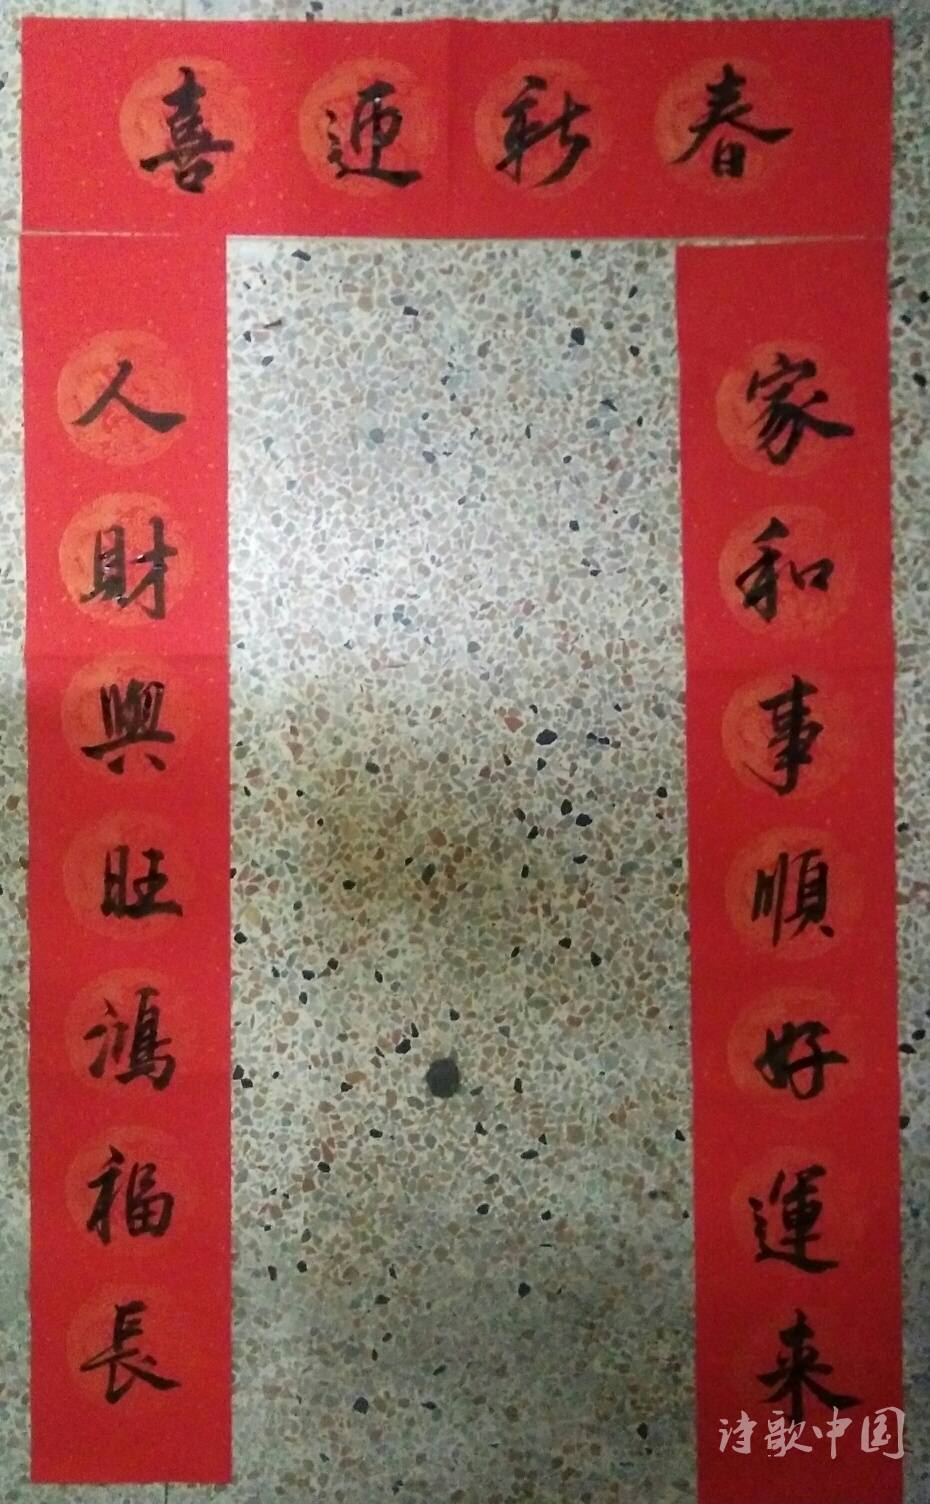 喜迎新春
家和事順好運来
人財興旺鴻福長
诗歌中国